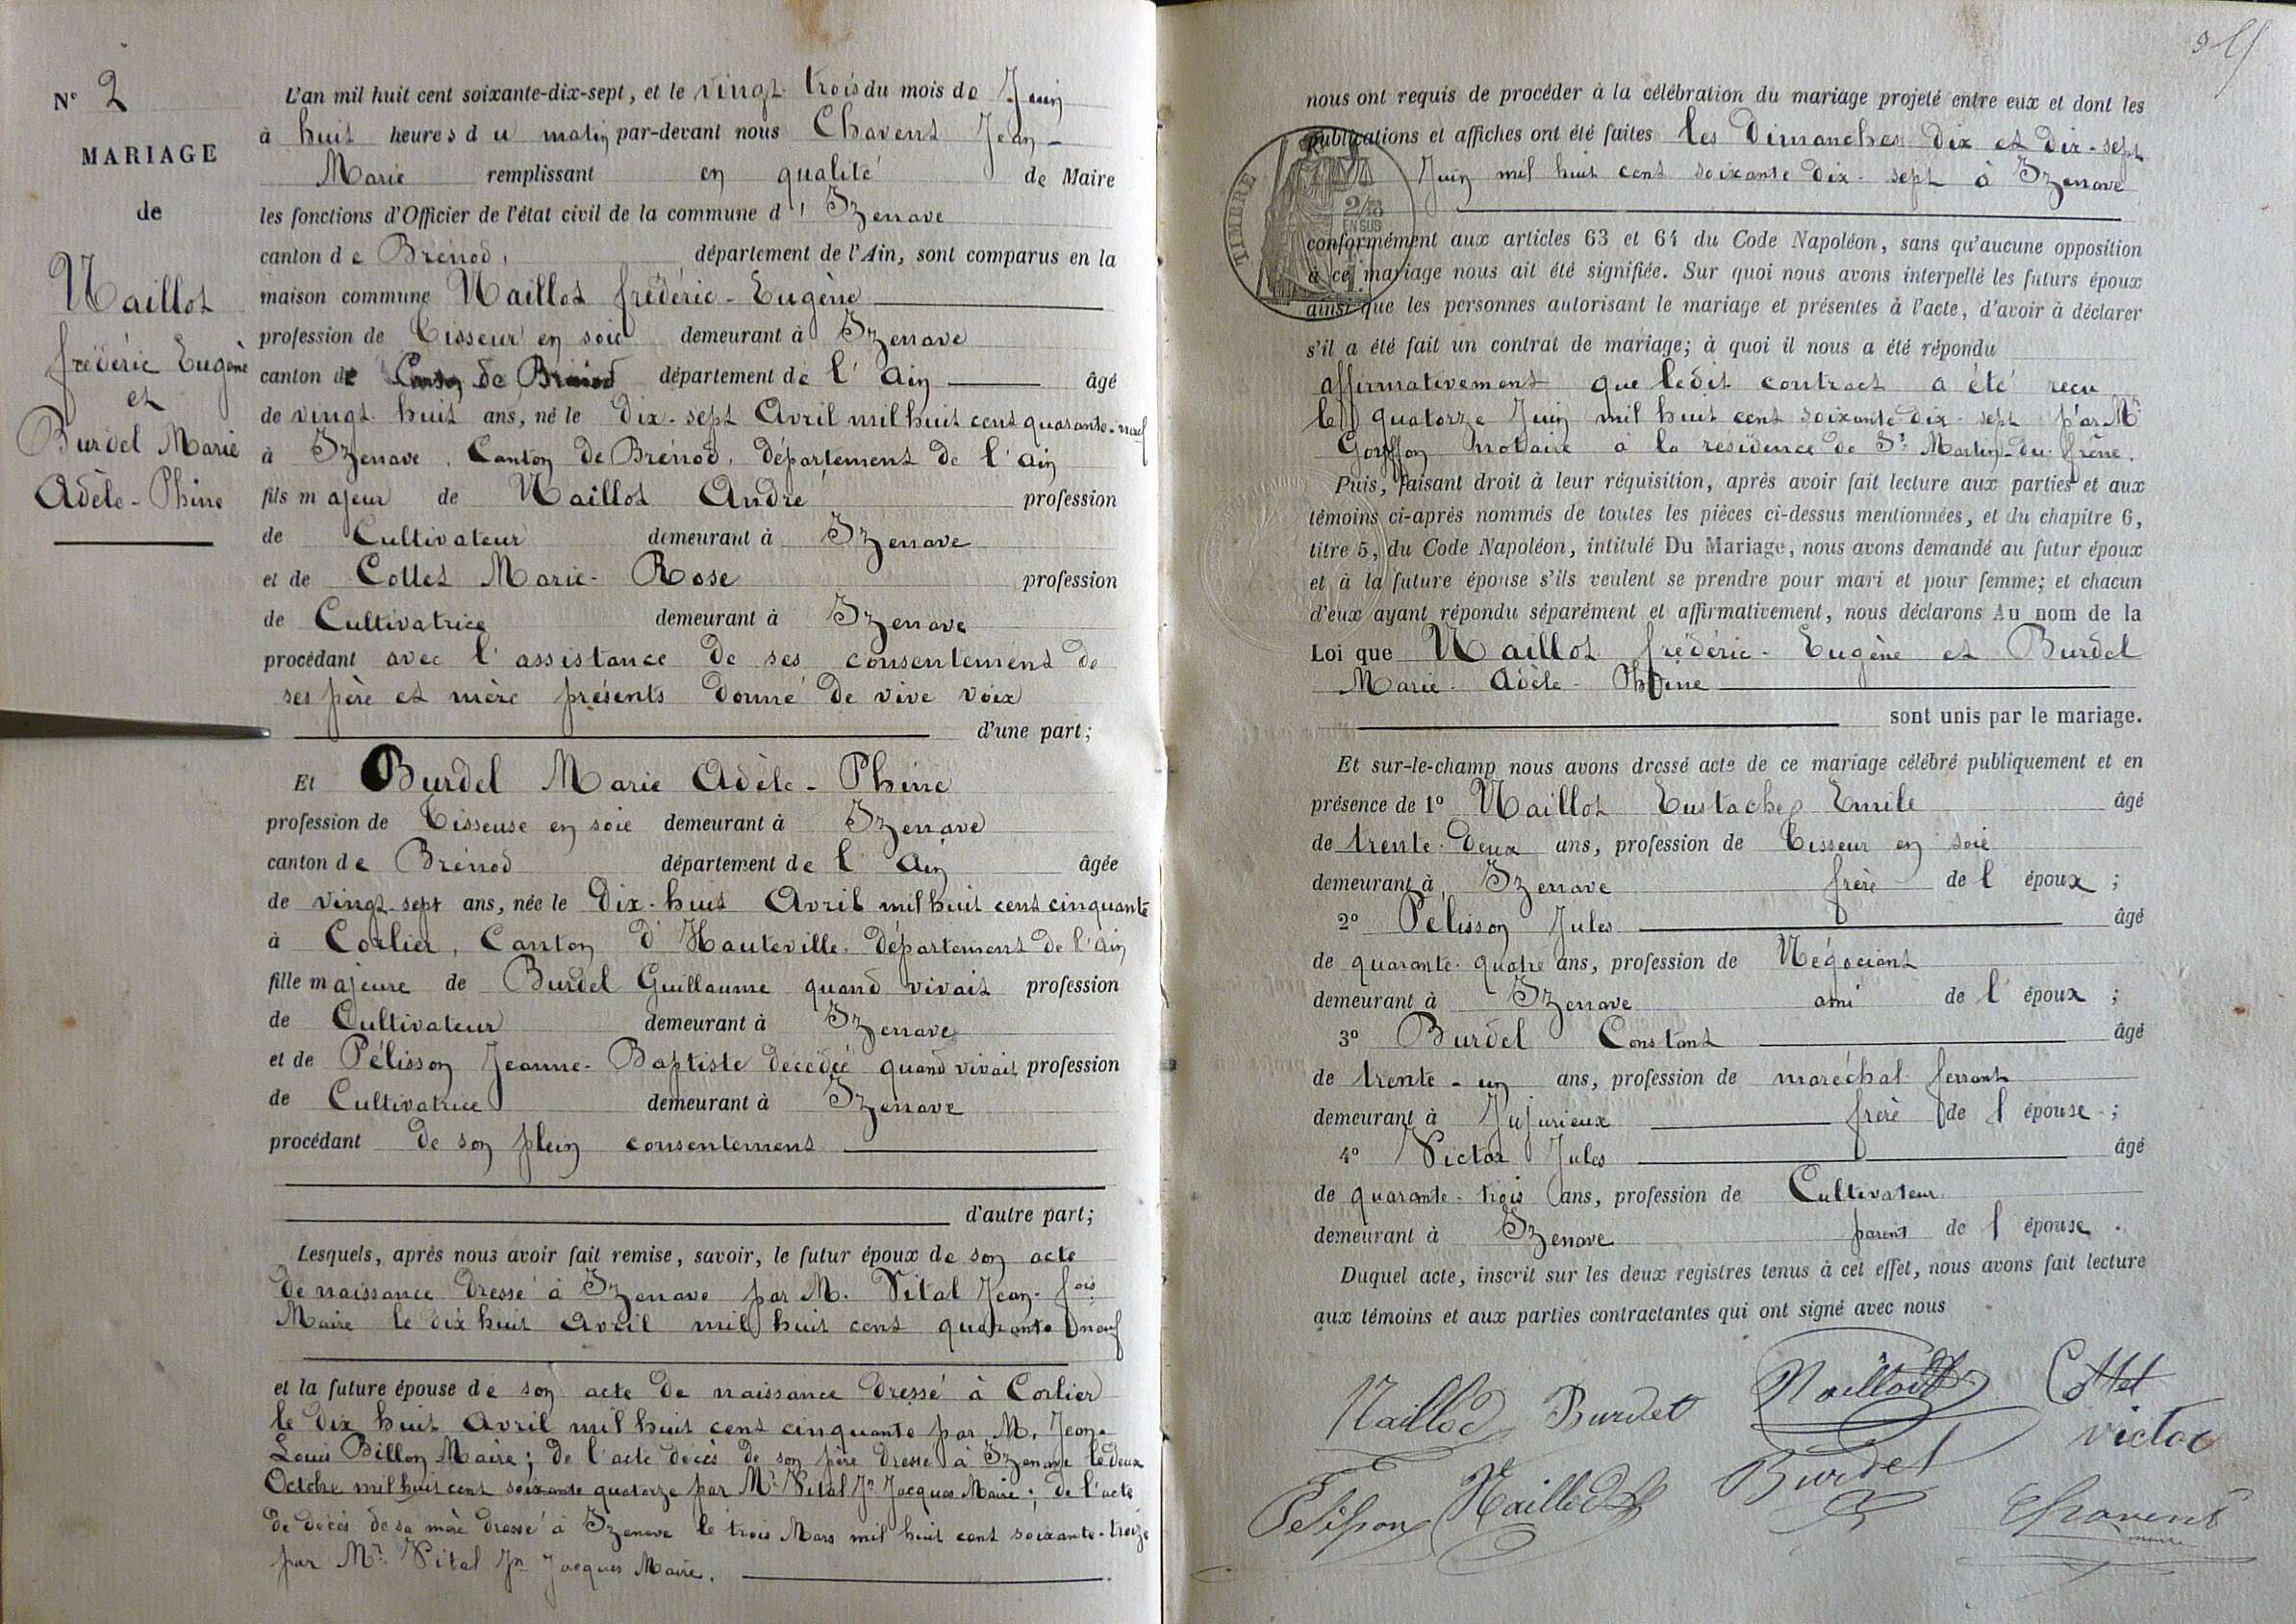 N° 2
MARIAGE
de
Naillod
frédéric Eugène
et
Burdel Marie
Adèle - Phine
L'an mil huit cent soixante-dix-sept, et le vingt trois du mois de Juin
à huit heures du matin par-devant nous Chavent Jean -
Marie remplissant en qualité de Maire
les fonctions d'Officier de l'état civil de la commune d' Izenave
canton de Brénod, département de l'Ain, sont comparus en la
maison commune Naillod frédéric - Eugène
profession de Tisseur en soie demeurant à Izenave
canton de Canton de Brénod département de l' Ain âgé
de vingt huit ans, né le dix-sept Avril mil huit cent quarante-neuf
à Izenave, Canton de Brénod, département de l'ain
fils majeur de Naillod André profession
de Cultivateur demeurant à Izenave
et de Collet Marie - Rose profession
de Cultivatrice demeurant à Izenave
procédant avec l'assistance de ses consentement de
ses père et mère présents donné de vive voix
d'une part;
Et Burdel Marie Adèle - Phine
profession de Tisseuse en soie demeurant à Izenave
canton de Brénod département de l' Ain âgée
de vingt-sept ans, née le dix-huit Avril mil huit cent cinquante
à Corlier, Canton d'Hauteville. département de l'ain
fille majeure de Burdel Guillaume quand vivait profession
de Cultivateur demeurant à Izenave
et de Pélisson Jeanne - Baptiste décédée quand vivait profession
de Cultivatrice demeurant à Izenave
procédant de son plein consentement
d'autre part;
Lesquels, après nous avoir fait remise, savoir, le futur époux de son acte
de naissance dressé à Izenave par M. Vital Jean - fois
Maire le dix huit avril mil huit cent quarante neuf
et la future épouse de son acte de naissance dressé à Corlier
le dix huit Avril mil huit cent cinquante par M. Jean-
Louis Billon Maire; de l'acte décès de son père dressé à Izenave le deux
Octobre mil huit cent soixante quatorze par Mr Vital Jn Jacques Maire; de l'acte
de décès de sa mère dressé à Izenave le trois Mars mil huit cent soixante-treize
par Mr Vital Jn Jacques Maire.
nous ont requis de procéder à la célébration du mariage projeté entre eux et dont les
publications et affiches ont été faites les Dimanches dix et dix-sept
Juin mil huit cent soixante dix-sept à Izenave
TIMBRE
conformément aux articles 63 et 64 du Code Napoléon, sans qu'aucune opposition
à ce mariage nous ait été signifiée. Sur quoi nous avons interpellé les futurs époux
ainsi que les personnes autorisant le mariage et présentes à l'acte, d'avoir à déclarer
s'il a été fait un contrat de mariage; à quoi il nous a été répondu
affirmativement que ledit contract a été reçu
le quatorze Juin mil huit cent soixante dix-sept par Me
notaire à la residence de St Martin-du-frêne.
Puis, faisant droit à leur réquisition, après avoir fait lecture aux parties et aux
témoins ci-après nommés de toutes les pièces ci-dessus mentionnées, et du chapitre 6,
titre 5, du Code Napoléon, intitulé Du Mariage, nous avons demandé au futur époux
et à la future épouse s'ils veulent se prendre pour mari et pour femme; et chacun
d'eux ayant répondu séparément et affirmativement, nous déclarons Au nom de la
Loi que Naillod frédéric - Eugène et Burdel
Marie - Adèle - Phine
sont unis par le mariage.
Et sur-le-champ nous avons dressé acte de ce mariage célébré publiquement et en
présence de 1° Naillod Eustache Emile âgé
de trente-deux ans, profession de tisseur en soie
demeurant à Izenave frère de l époux ;
2° Pélisson Jules âgé
de quarante-quatre ans, profession de Négociant
demeurant à Izenave ami de l' époux ;
3° Burdel Constant âgé
de trente-un ans, profession de maréchal ferrant
demeurant à Jujurieux frère de l épouse ;
4° Victor Jules âgé
de quarante-trois ans, profession de Cultivateur
demeurant à Izenave parent de l épouse .
Duquel acte, inscrit sur les deux registres tenus à cet effet, nous avons fait lecture
aux témoins et aux parties contractantes qui ont signé avec nous
Naillod Burdet Naillod Collet
victor
Pelisson Naillod Burdel Chavent
maire